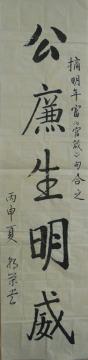 摘明年富《官箴》句合之
公廉生明威
丙申夏